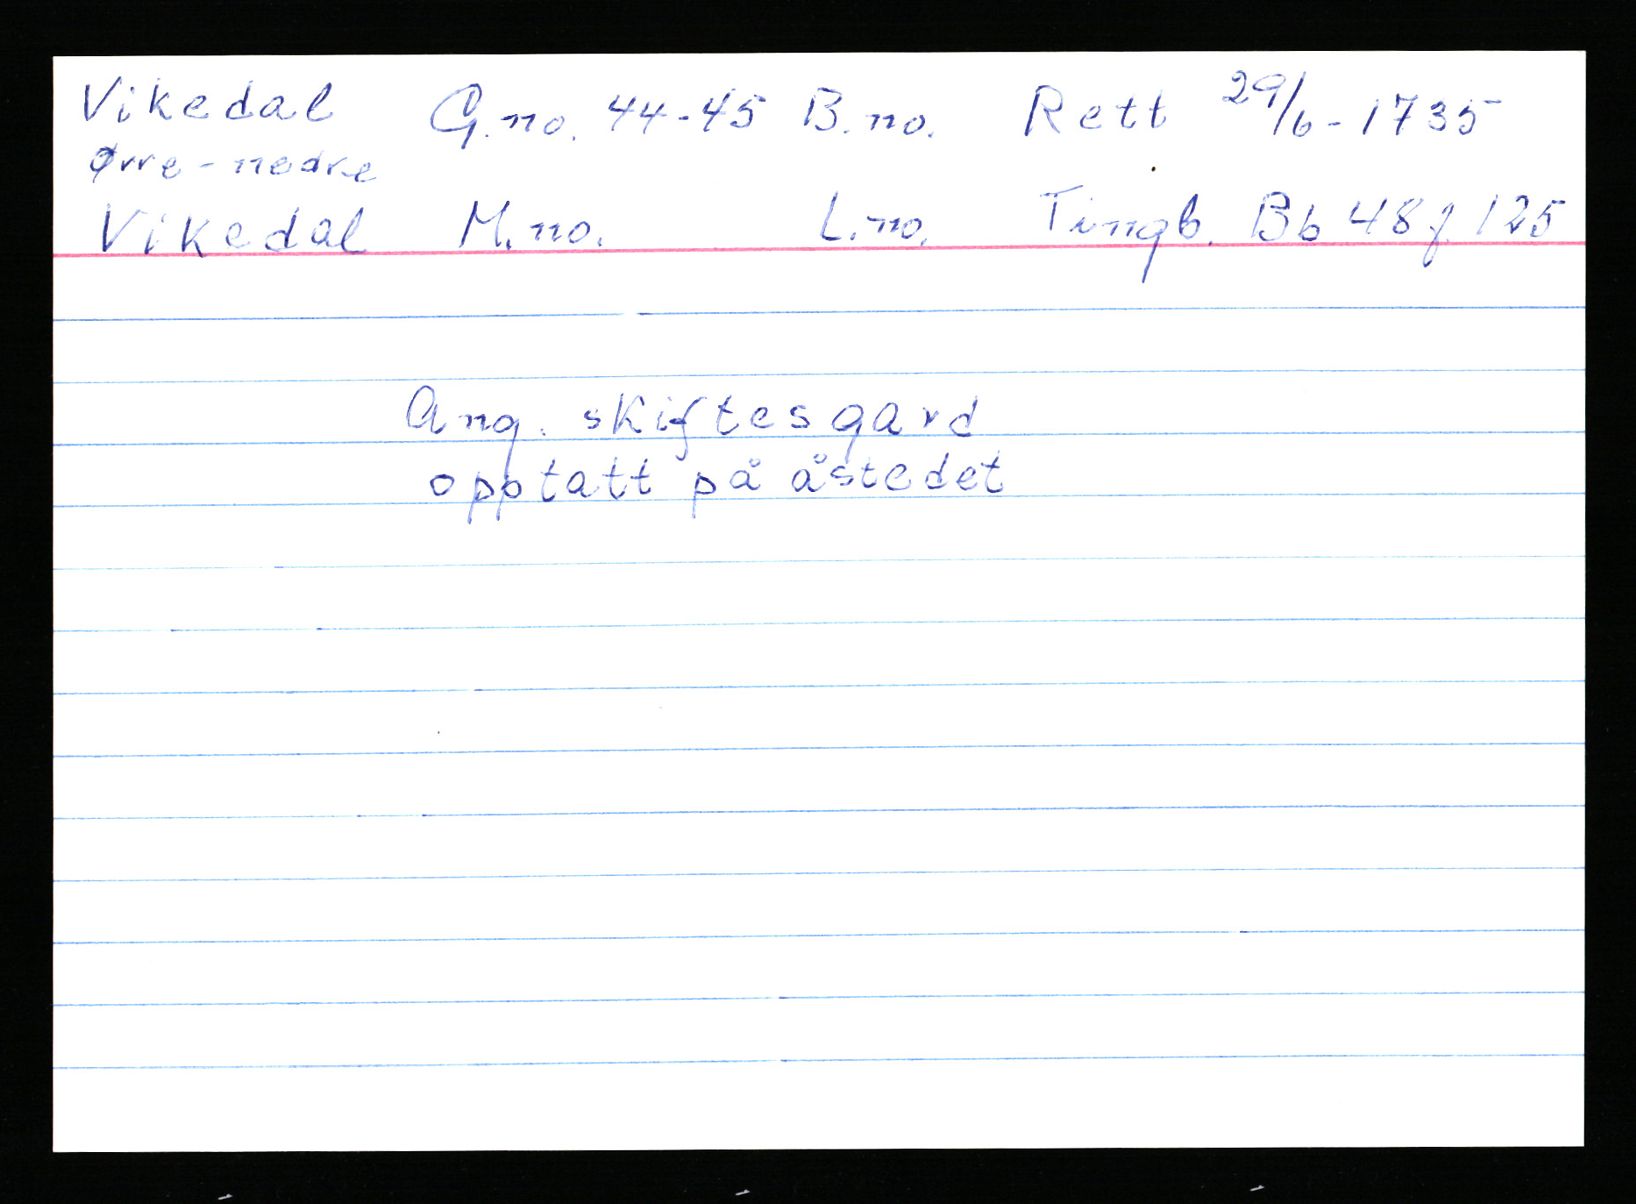 Vikedal G.no. 44-45 B.no. Rett 29/6-1735
Øvre - nedre
Vikedal M.no. L.no. Tingb. Bb 48 f. 125
Ang. skiftesgard
opptatt på åstedet